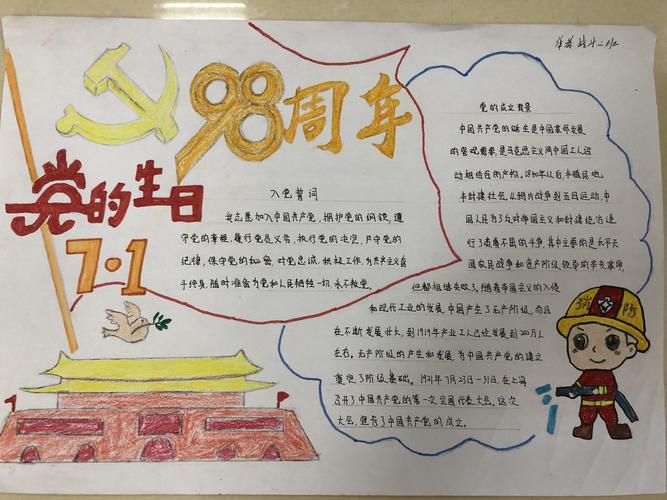 华蓥战斗二班
98周年
党的生日
7·1
入党誓词
我志愿加入中国共产党，拥护党的纲领，遵
守党的章程，履行党员义务，执行党的决定，严守党的
纪律，保守党的秘密，对党忠诚，积极工作，为共产主义奋
斗终身，随时准备为党和人民牺牲一切，永不叛党。
党的成立背景
中国共产党的诞生是中国革命发展
的客观需要，是马克思主义同中国工人运
动相结合的产物。1840年以后，半殖民地
半封建社会。从鸦片战争到五四运动，中
国人民为了反对帝国主义和封建统治进
行了英勇不屈的斗争，其中主要的是太平天
国农民战争和资产阶级领导的辛亥革命，
但都相继失败了，随着帝国主义的入侵
和现代工业的发展，中国产生了无产阶级，而且
在不断发展壮大，到1919年产业工人已经发展到200万人
左右。无产阶级的产生和发展，为中国共产党的建立
奠定了阶级基础。1921年7月23日-31日，在上海
召开了中国共产党的第一次全国代表大会。这次
大会，宣告了中国共产党的成立。
消防